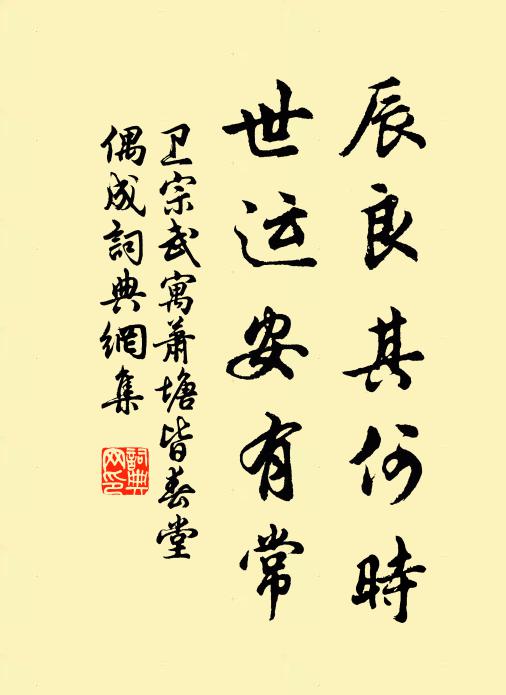 辰良其何時
世运安有常
卫宗武寓萧塘皆春堂
偶成詞典網集
詞典网印